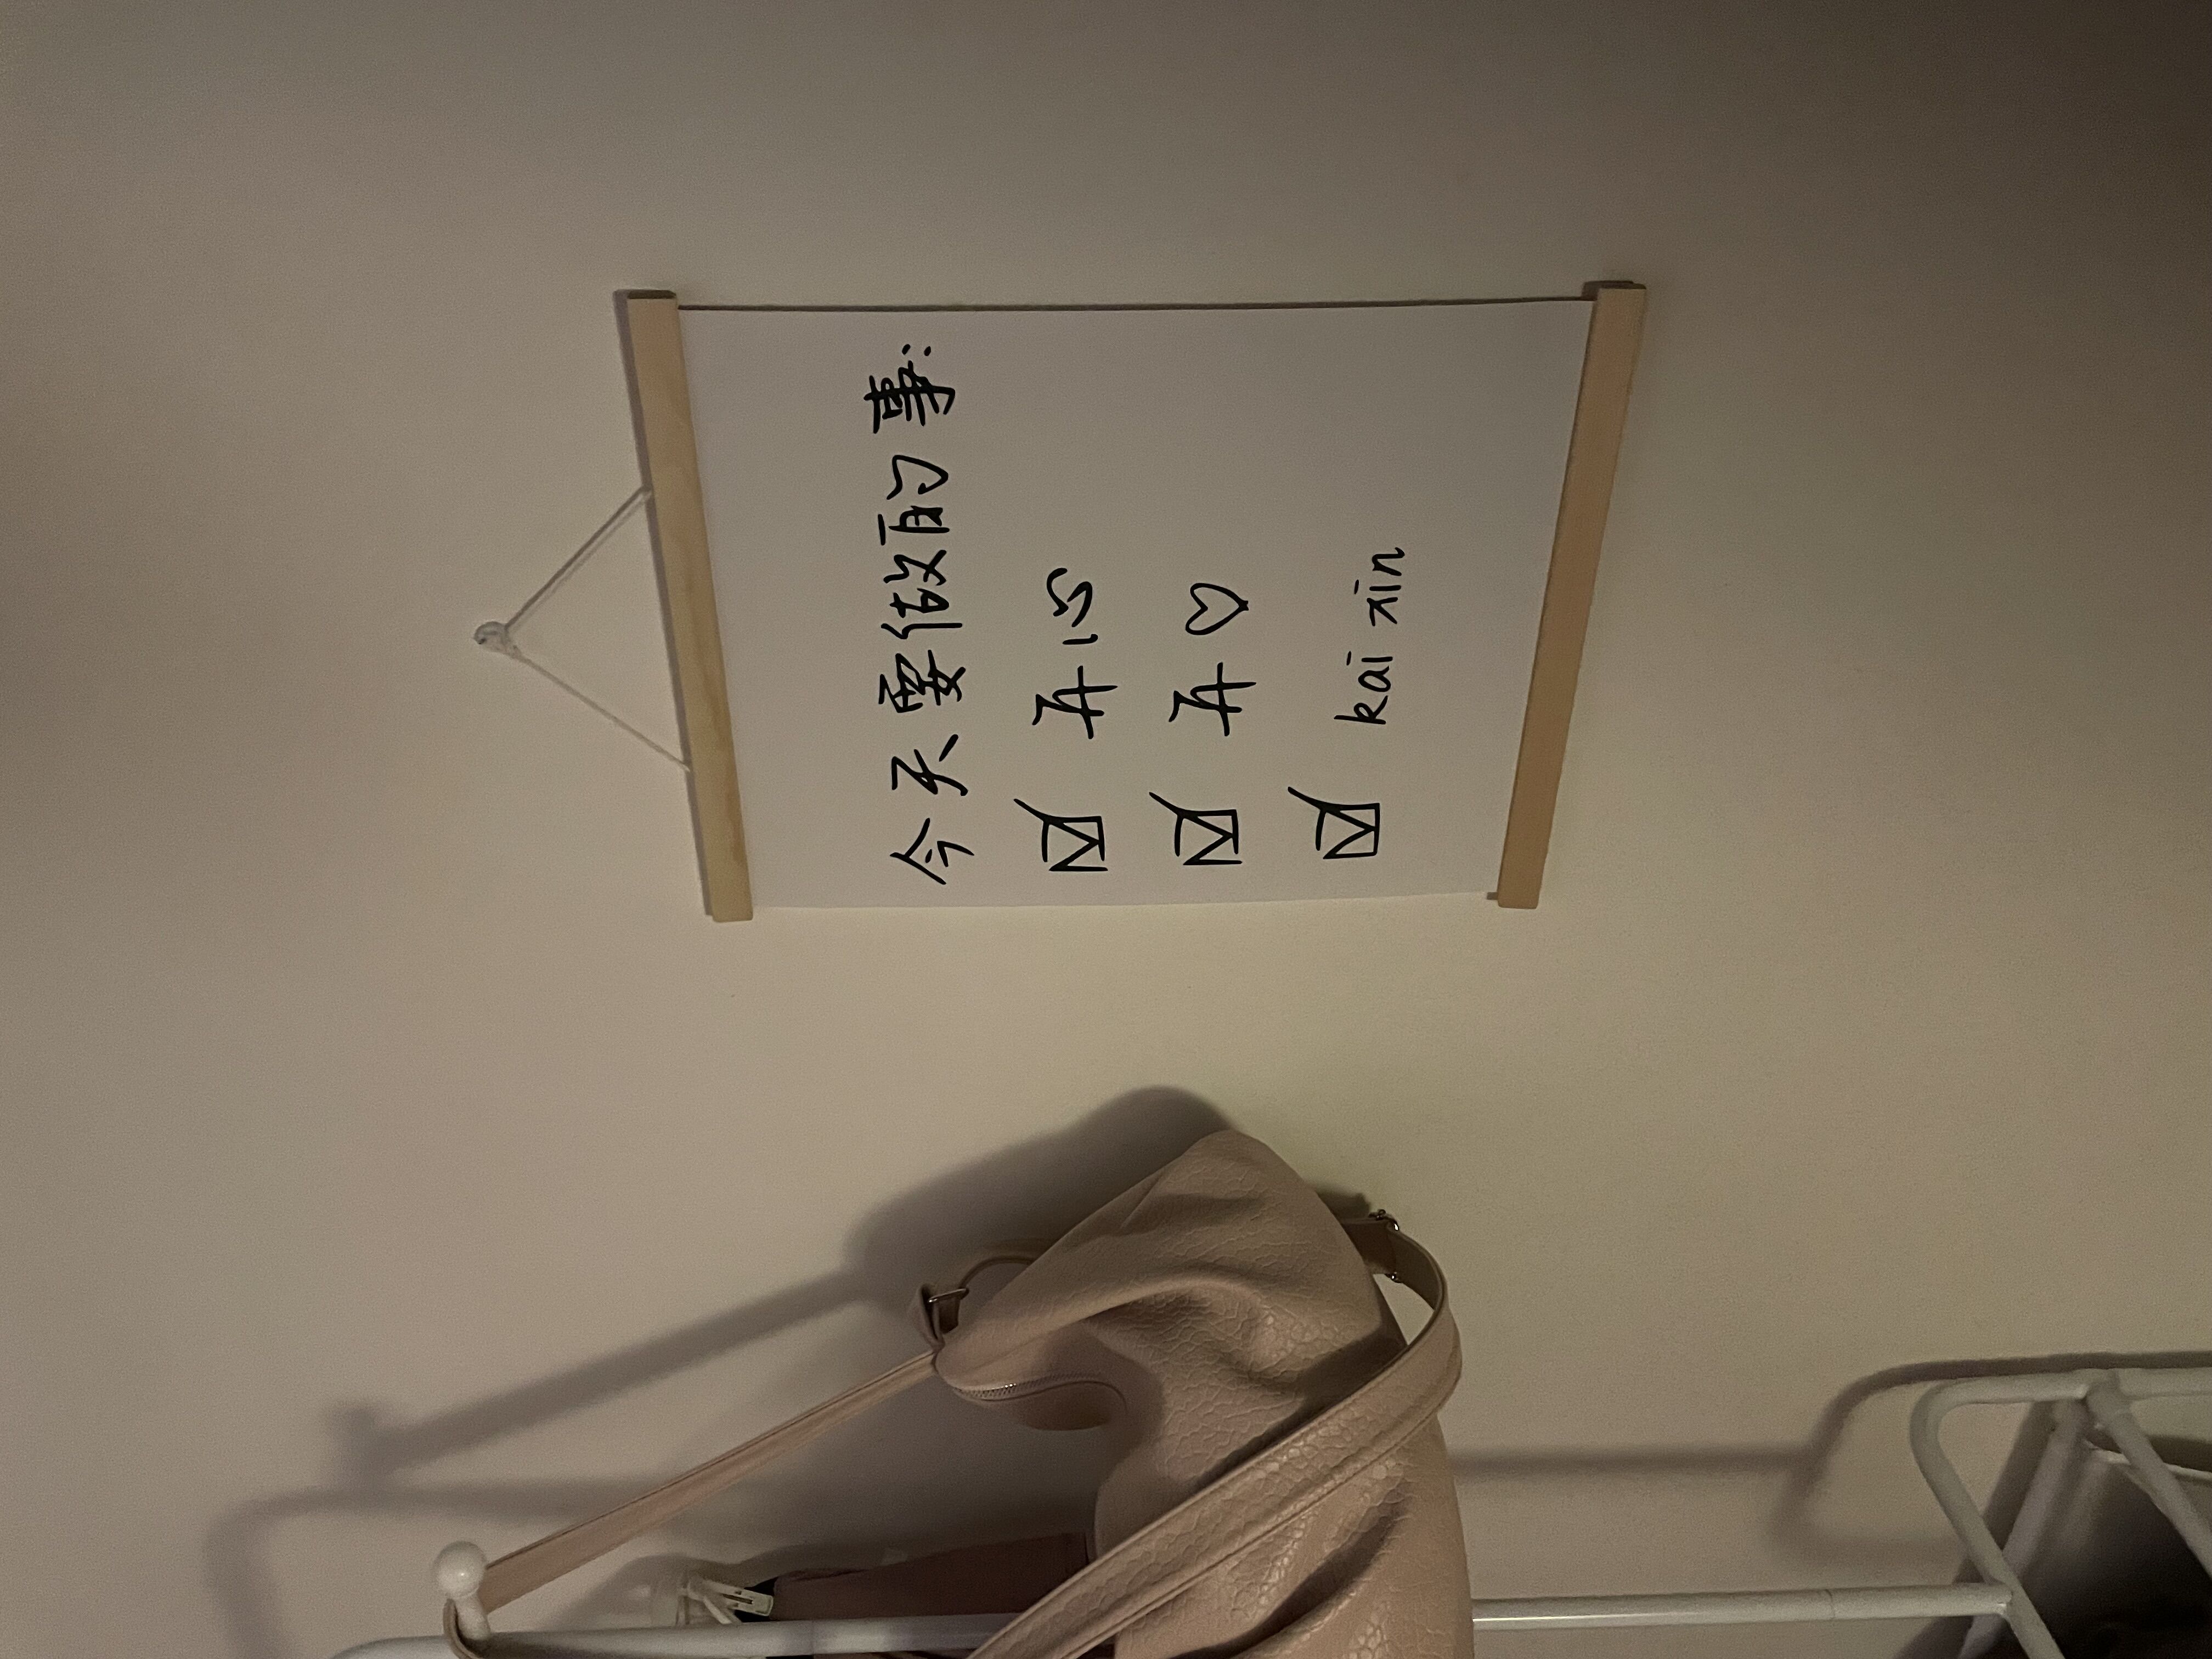 今天要做的事:
☑ 开心
☑ 开♡
☑ kāi xīn